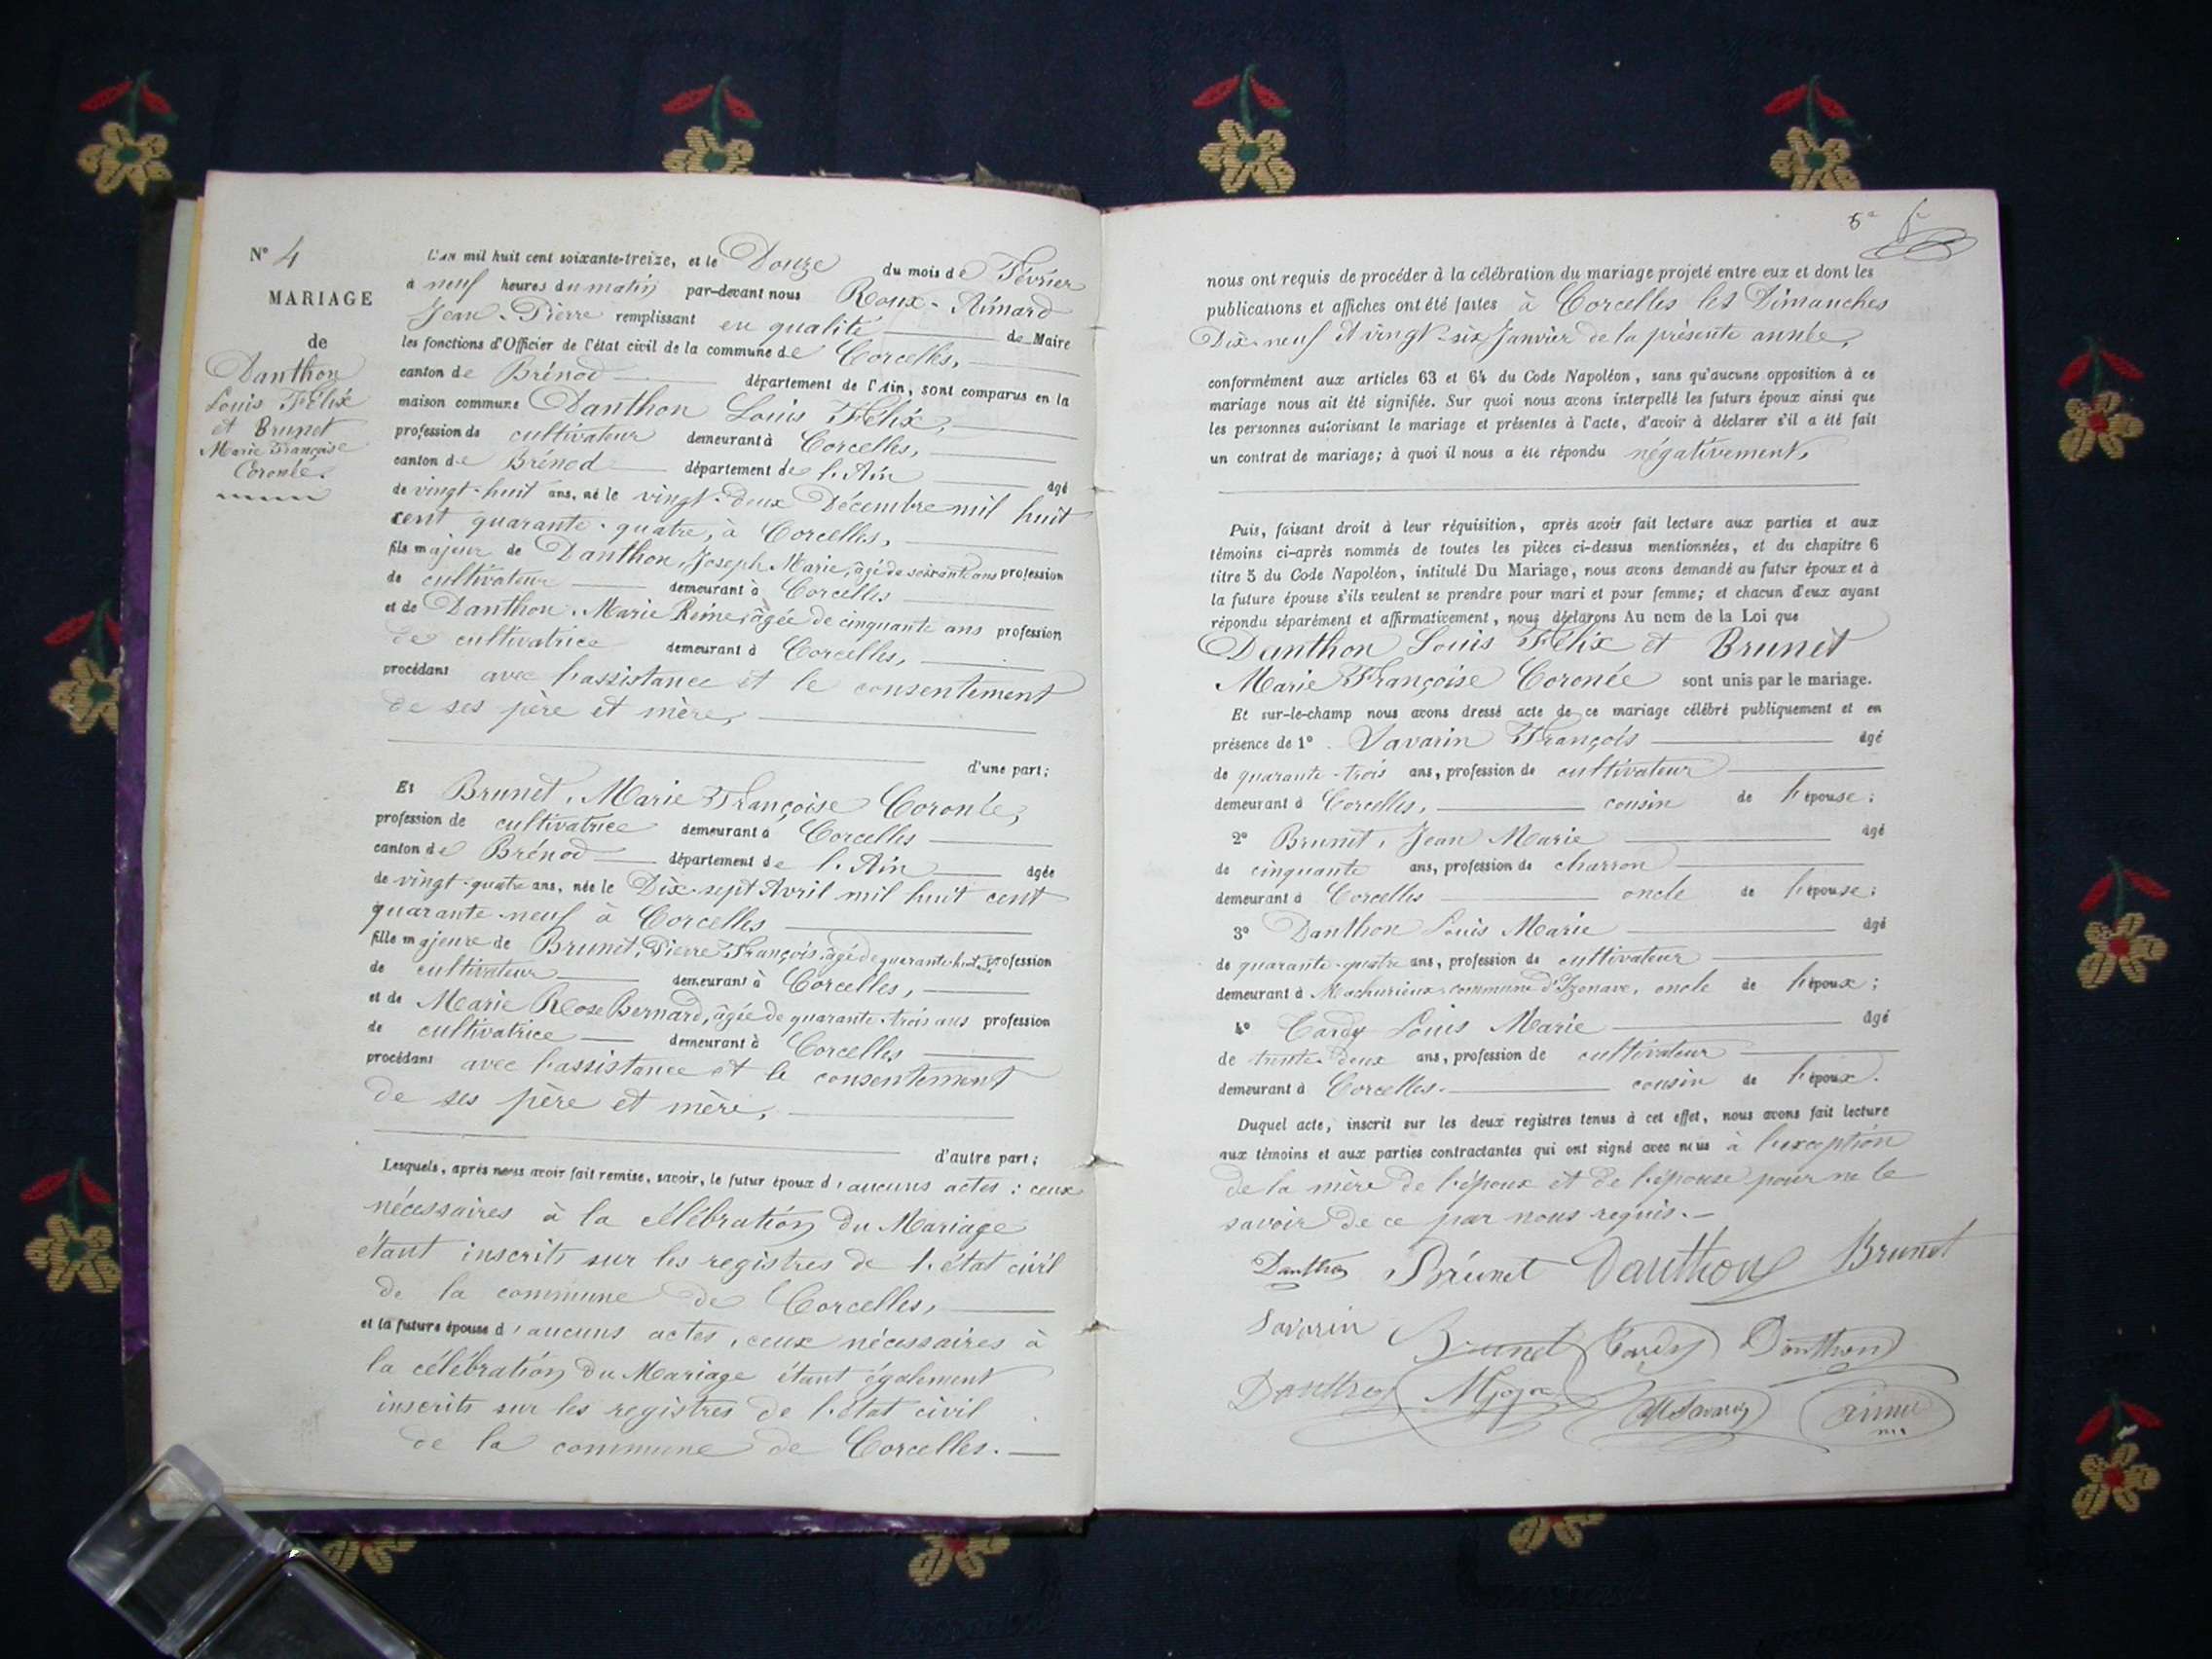 N° 4
MARIAGE
de
Danthon
Louis Félix
et Brunet
Marie Françoise
Coronée.
L'an mil huit cent soixante-treize, et le Douze du mois de Février
à neuf heures du matin par-devant nous Roux-Aimard
Jean-Pierre remplissant en qualité de Maire
les fonctions d'Officier de l'état civil de la commune de Corcelles,
canton de Brénod département de l'Ain, sont comparus en la
maison commune Danthon Louis Félix,
profession de cultivateur demeurant à Corcelles,
canton de Brénod département de l'Ain âgé
de vingt-huit ans, né le vingt-deux Décembre mil huit
cent quarante-quatre, à Corcelles,
fils majeur de Danthon, Joseph Marie, âgé de soixante ans profession
de cultivateur demeurant à Corcelles
et de Danthon, Marie Reine, âgée de cinquante ans profession
de cultivatrice demeurant à Corcelles,
procédant avec l'assistance et le consentement
de ses père et mère,
d'une part;
Et Brunet, Marie Françoise Coronée,
profession de cultivatrice demeurant à Corcelles
canton de Brénod département de l'Ain âgée
de vingt-quatre ans, née le Dix-sept Avril mil huit cent
quarante-neuf à Corcelles
fille majeure de Brunet, Pierre François, âgé de quarante-huit ans profession
de cultivateur demeurant à Corcelles,
et de Marie Rose Bernard, âgée de quarante-trois ans profession
de cultivatrice demeurant à Corcelles
procédant avec l'assistance et le consentement
de ses père et mère,
d'autre part;
Lesquels, après nous avoir fait remise, savoir, le futur époux d'aucuns actes : ceux
nécessaires à la célébration du Mariage
étant inscrits sur les registres de l'état civil
de la commune de Corcelles,
et la future épouse d'aucuns actes, ceux nécessaires à
la célébration du Mariage étant également
inscrits sur les registres de l'état civil
de la commune de Corcelles.
nous ont requis de procéder à la célébration du mariage projeté entre eux et dont les
publications et affiches ont été faites à Corcelles les Dimanches
Dix-neuf et vingt-six Janvier de la présente année,
conformément aux articles 63 et 64 du Code Napoléon, sans qu'aucune opposition à ce
mariage nous ait été signifiée. Sur quoi nous avons interpellé les futurs époux ainsi que
les personnes autorisant le mariage et présentes à l'acte, d'avoir à déclarer s'il a été fait
un contrat de mariage; à quoi il nous a été répondu négativement,
Puis, faisant droit à leur réquisition, après avoir fait lecture aux parties et aux
témoins ci-après nommés de toutes les pièces ci-dessus mentionnées, et du chapitre 6
titre 5 du Code Napoléon, intitulé Du Mariage, nous avons demandé au futur époux et à
la future épouse s'ils veulent se prendre pour mari et pour femme; et chacun d'eux ayant
répondu séparément et affirmativement, nous déclarons Au nom de la Loi que
Danthon Louis Félix et Brunet
Marie Françoise Coronée sont unis par le mariage.
Et sur-le-champ nous avons dressé acte de ce mariage célébré publiquement et en
présence de 1° Savarin François âgé
de quarante-trois ans, profession de cultivateur
demeurant à Corcelles, cousin de l'épouse;
2° Brunet, Jean Marie âgé
de cinquante ans, profession de charron
demeurant à Corcelles oncle de l'épouse;
3° Danthon Louis Marie âgé
de quarante-quatre ans, profession de cultivateur
demeurant à Machurieux, commune d'Izenave, oncle de l'époux;
4° Cardy Louis Marie âgé
de trente-deux ans, profession de cultivateur
demeurant à Corcelles. cousin de l'époux.
Duquel acte, inscrit sur les deux registres tenus à cet effet, nous avons fait lecture
aux témoins et aux parties contractantes qui ont signé avec nous à l'exception
de la mère de l'époux et de l'épouse pour ne le
savoir de ce par nous requis.
Danthon Brunet Danthon Brunet
Savarin Brunet Cardy Danthon
Danthon